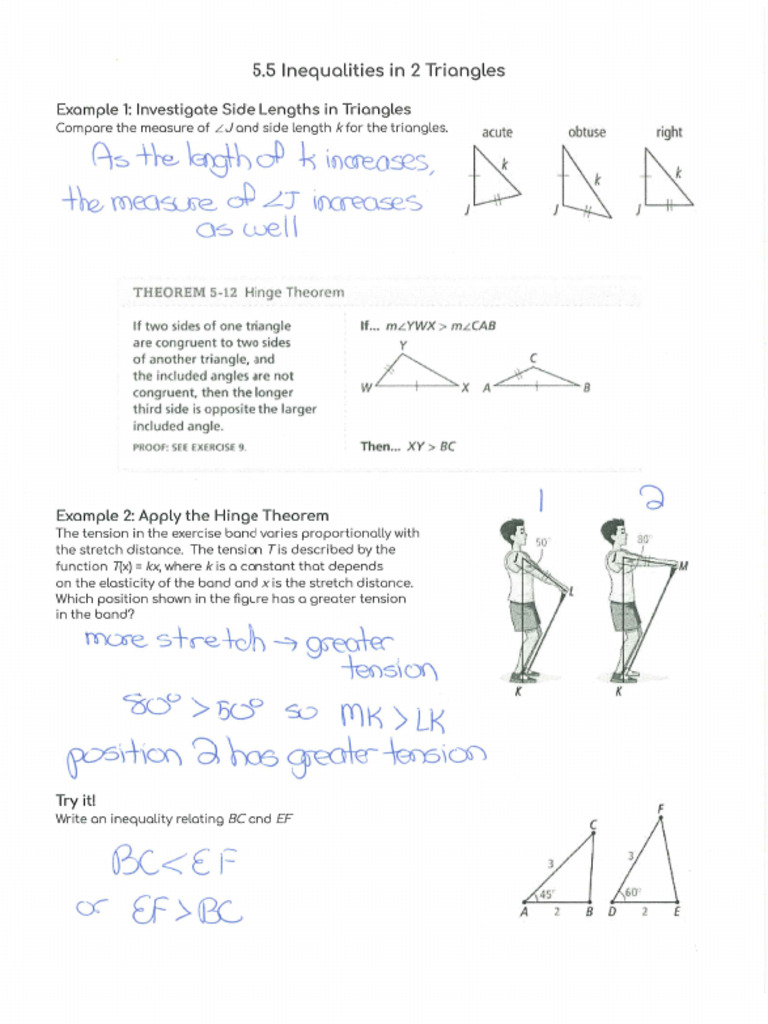 5.5 Inequalities in 2 Triangles
Example 1: Investigate Side Lengths in Triangles
Compare the measure of ∠J and side length k for the triangles.
acute obtuse right
As the length of k increases,
the measure of ∠J increases
as well
k k k
J J J
THEOREM 5-12 Hinge Theorem
If two sides of one triangle
are congruent to two sides
of another triangle, and
the included angles are not
congruent, then the longer
third side is opposite the larger
included angle.
PROOF: SEE EXERCISE 9.
If... m∠YWX > m∠CAB
Y
C
W X A B
Then... XY > BC
1 2
Example 2: Apply the Hinge Theorem
The tension in the exercise band varies proportionally with
the stretch distance. The tension T is described by the
function T(x) = kx, where k is a constant that depends
on the elasticity of the band and x is the stretch distance.
Which position shown in the figure has a greater tension
in the band?
50° 80°
J J
L M
K K
more stretch → greater
tension
80° > 50° so MK > LK
position 2 has greater tension
Try it!
Write an inequality relating BC and EF
BC < EF
or EF > BC
C F
3 3
45° 60°
A 2 B D 2 E